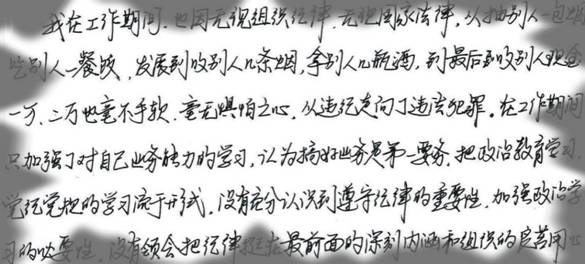 我在工作期间,也因无视组织纪律,无视国家法律,从抽别人一包烟
吃别人一餐饭,发展到收别人几条烟,拿别人几瓶酒,到最后到收别人现金
一万、二万也毫不手软,毫无惧怕之心,从违纪走向了违法犯罪。在工作期间
只加强了对自己业务能力的学习,认为搞好业务是第一要务,把政治教育学习
党纪党规的学习流于形式,没有充分认识到遵守纪律的重要性,加强政治学
习的必要性,没有领会把纪律挺在最前面的深刻内涵和组织的良苦用